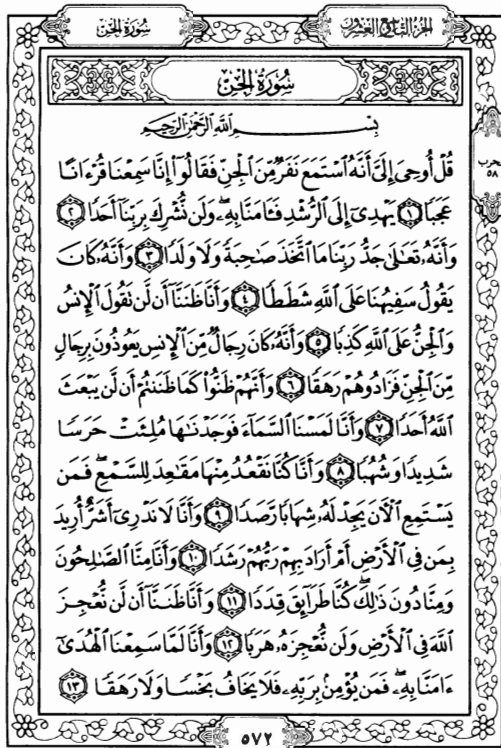 الجزء التاسع والعشرون
سورة الجن
سُورَةُ الْجِنِّ
بِسْمِ اللَّهِ الرَّحْمَٰنِ الرَّحِيمِ
قُلْ أُوحِيَ إِلَيَّ أَنَّهُ ٱسْتَمَعَ نَفَرٌ مِّنَ ٱلْجِنِّ فَقَالُوٓا۟ إِنَّا سَمِعْنَا قُرْءَانًا
عَجَبًا ١ يَهْدِىٓ إِلَى ٱلرُّشْدِ فَـَٔامَنَّا بِهِۦ ۖ وَلَن نُّشْرِكَ بِرَبِّنَآ أَحَدًا ٢
وَأَنَّهُۥ تَعَٰلَىٰ جَدُّ رَبِّنَا مَا ٱتَّخَذَ صَٰحِبَةً وَلَا وَلَدًا ٣ وَأَنَّهُۥ كَانَ
يَقُولُ سَفِيهُنَا عَلَى ٱللَّهِ شَطَطًا ٤ وَأَنَّا ظَنَنَّآ أَن لَّن تَقُولَ ٱلْإِنسُ
وَٱلْجِنُّ عَلَى ٱللَّهِ كَذِبًا ٥ وَأَنَّهُۥ كَانَ رِجَالٌ مِّنَ ٱلْإِنسِ يَعُوذُونَ بِرِجَالٍ
مِّنَ ٱلْجِنِّ فَزَادُوهُمْ رَهَقًا ٦ وَأَنَّهُمْ ظَنُّوا۟ كَمَا ظَنَنتُمْ أَن لَّن يَبْعَثَ
ٱللَّهُ أَحَدًا ٧ وَأَنَّا لَمَسْنَا ٱلسَّمَآءَ فَوَجَدْنَٰهَا مُلِئَتْ حَرَسًا
شَدِيدًا وَشُهُبًا ٨ وَأَنَّا كُنَّا نَقْعُدُ مِنْهَا مَقَٰعِدَ لِلسَّمْعِ ۖ فَمَن
يَسْتَمِعِ ٱلْـَٔانَ يَجِدْ لَهُۥ شِهَابًا رَّصَدًا ٩ وَأَنَّا لَا نَدْرِىٓ أَشَرٌّ أُرِيدَ
بِمَن فِى ٱلْأَرْضِ أَمْ أَرَادَ بِهِمْ رَبُّهُمْ رَشَدًا ١٠ وَأَنَّا مِنَّا ٱلصَّٰلِحُونَ
وَمِنَّا دُونَ ذَٰلِكَ ۖ كُنَّا طَرَآئِقَ قِدَدًا ١١ وَأَنَّا ظَنَنَّآ أَن لَّن نُّعْجِزَ
ٱللَّهَ فِى ٱلْأَرْضِ وَلَن نُّعْجِزَهُۥ هَرَبًا ١٢ وَأَنَّا لَمَّا سَمِعْنَا ٱلْهُدَىٰٓ
ءَامَنَّا بِهِۦ ۖ فَمَن يُؤْمِنۢ بِرَبِّهِۦ فَلَا يَخَافُ بَخْسًا وَلَا رَهَقًا ١٣
حزب
٥٨
٥٧٢